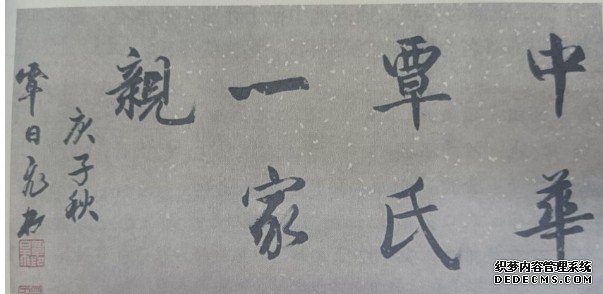 中華
覃氏
一家
親
庚子秋
覃日飛书
织梦内容管理系统
DEDECMS.COM